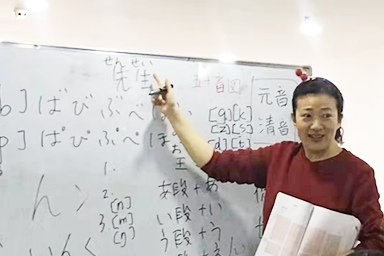 せんせい
先生
五十音图
b] ば び ぶ べ
[g][k]
元音
p] ぱ ぴ ぷ ぺ ぽ
[z][s]
清音
[d][t]
お
王
1.
ん〉
2.
[n]
3
[m]
[ŋ]
あ段+あ
い段+い
う段+う